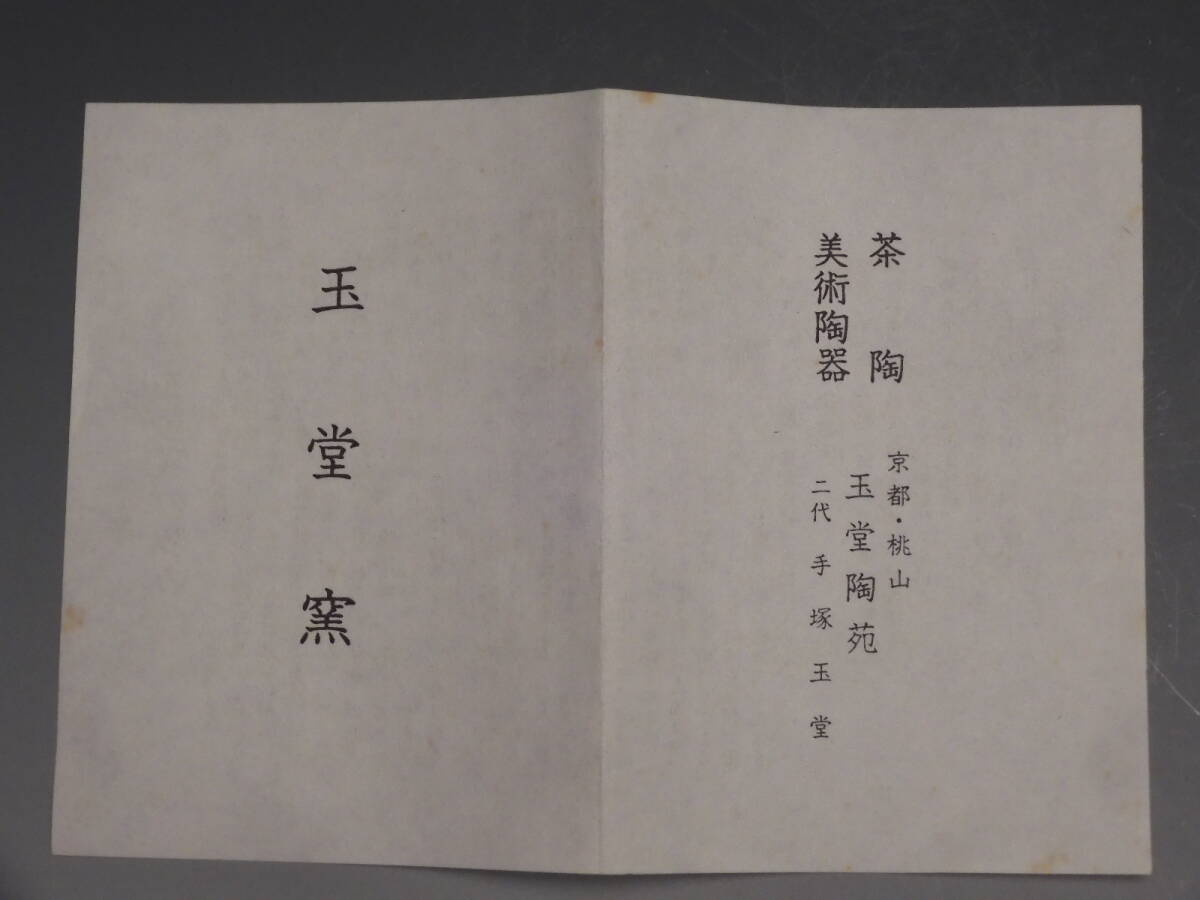 茶陶
美術陶器
京都・桃山
玉堂陶苑
二代 手塚玉堂
玉堂窯